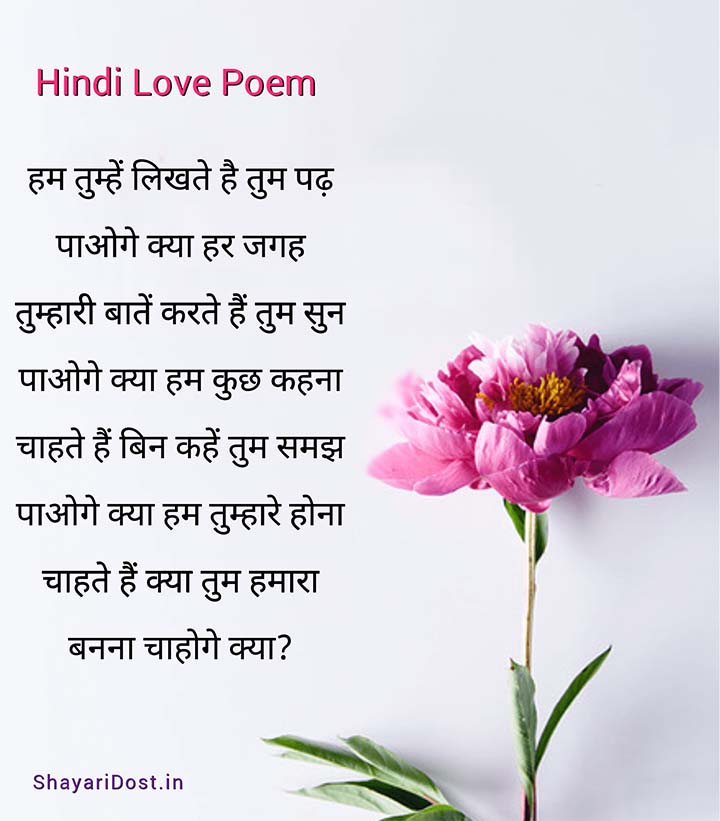 Hindi Love Poem
हम तुम्हें लिखते है तुम पढ़
पाओगे क्या हर जगह
तुम्हारी बातें करते हैं तुम सुन
पाओगे क्या हम कुछ कहना
चाहते हैं बिन कहें तुम समझ
पाओगे क्या हम तुम्हारे होना
चाहते हैं क्या तुम हमारा
बनना चाहोगे क्या?
ShayariDost.in